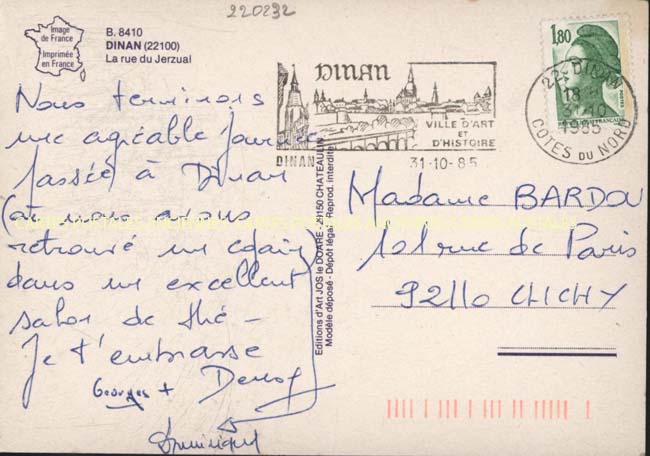 220232
Image
de France
Imprimée
en France
B. 8410
DINAN (22100)
La rue du Jerzual
DINAN
VILLE D'ART
ET
D'HISTOIRE
DINAN
31-10-85
1,80
22 DINAN
18 H
31-10
1985
COTES DU NORD
Nous terminons
une agréable journée
passée à Dinan
(où nous avons
retrouvé un copain
dans un excellent
salon de thé -
Je t'embrasse
Georges +
Dominique
Editions d'Art JOS le DOARE - 29150 CHATEAULIN
Modèle déposé - Dépôt légal - Reprod. interdite
Madame BARDOU
101 rue de Paris
92110 CLICHY